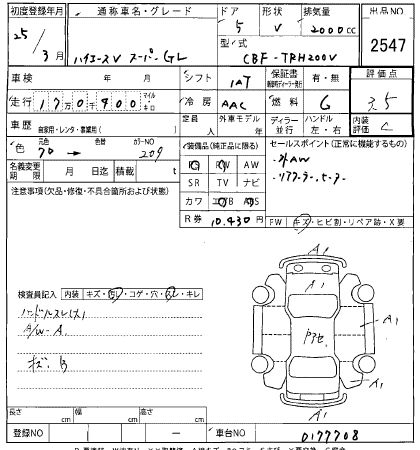 初度登録年月 通称車名・グレード ドア 形状 排気量 出品NO
25/3月 ハイエースV スーパーGL 5 V 2000cc 2547
型/式 CBF-TRH200V
車検 年 月 シフト IAT 保証書 有・無 評価点
走行 17万0千400 マイル・キロ 冷房 AAC 燃料 G 3.5
車歴 自家用・レンタ・事業用( ) 定員 人 外車モデル 年 ディーラー 並行 ハンドル 左・右 内装評価 C
色 元色 070 → 色替 カラーNO 209
装備品(純正品に限る) セールスポイント(正常に機能するもの)
PS PW AW ・外AW
名義変更期限 月 日迄 積載 t SR TV ナビ ・リアクーラー、ヒーター
注意事項(欠品・修復・不具合箇所および状態) カワ エアB ABS
R券 10,430円 FW キズ・ヒビ割・リペア跡・X要
検査員記入 内装 キズ・汚レ・コゲ・穴・スレ・キレ
ハンドルスレ(大)
A/W-A
A1
A1
A1
A1
A1
長さ cm 幅 cm 高さ cm
登録NO — 車台NO 0177708